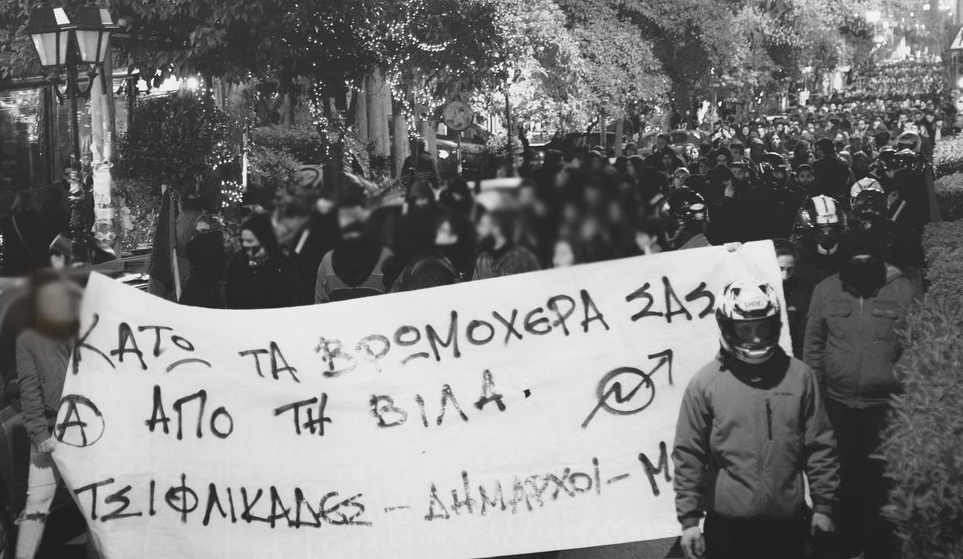 ΚΑΤΩ ΤΑ ΒΡΩΜΟΧΕΡΑ ΣΑΣ
Α ΑΠΟ ΤΗ ΒΙΛΑ.
ΤΣΙΦΛΙΚΑΔΕΣ - ΔΗΜΑΡΧΟΙ - Μ
SHOEI